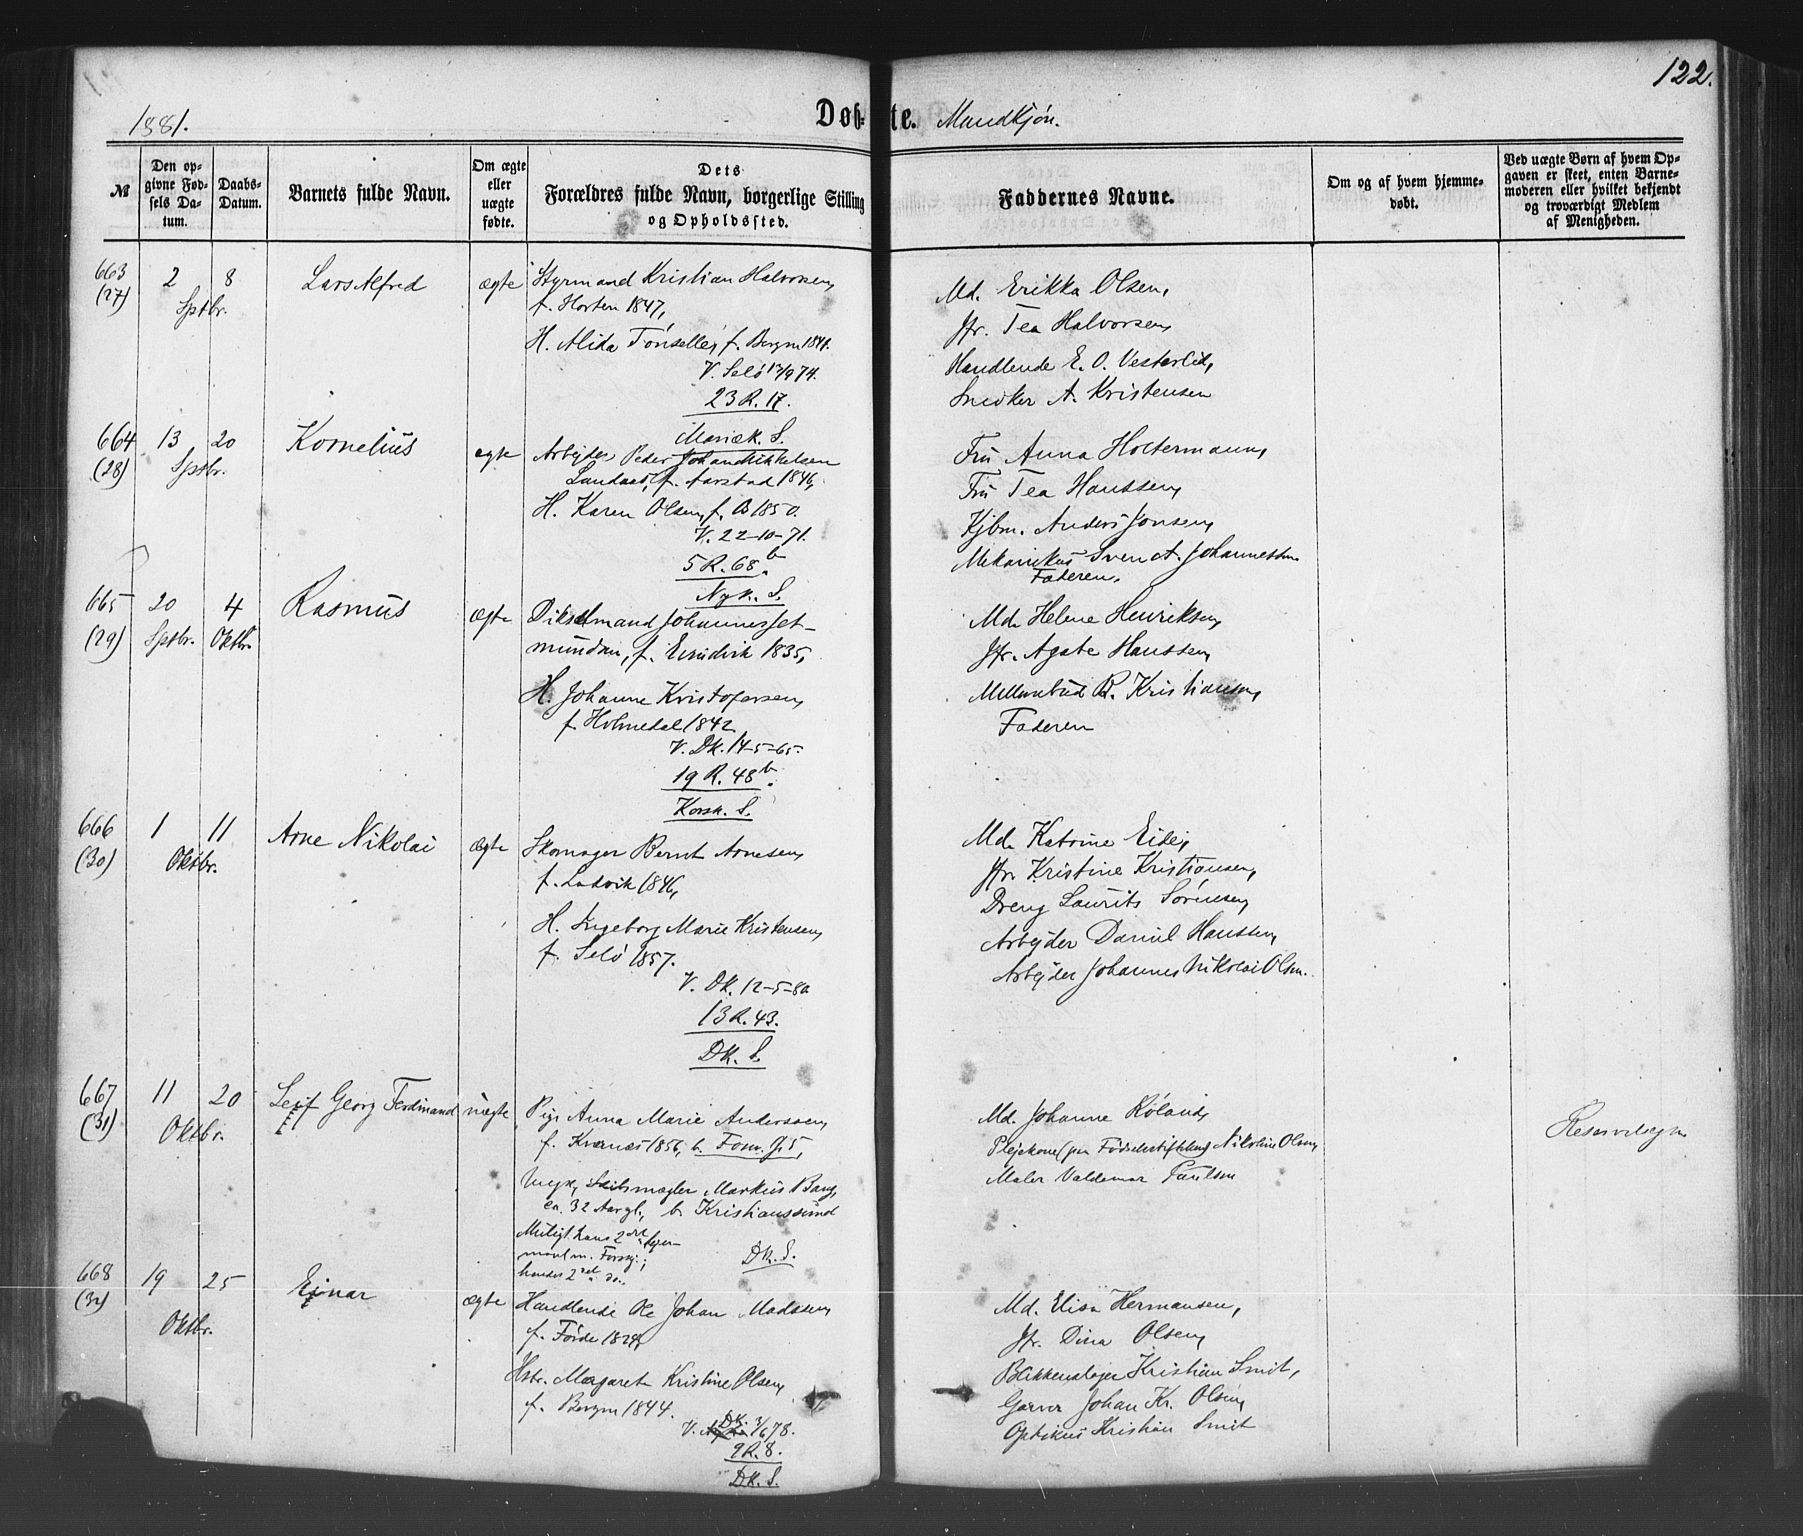 122.
1881.
Døbte. Mandkjøn.
№
Den opgivne Fødsels Datum.
Daabs-Datum.
Barnets fulde Navn.
Om ægte eller uægte fødte.
Dets Forældres fulde Navn, borgerlige Stilling og Opholdssted.
Faddernes Navne.
Om og af hvem hjemmedøbt.
Ved uægte Børn af hvem Opgaven er skeet, enten Barnemoderen eller hvilket bekjendt og troværdigt Medlem af Menigheden.
663 (27)
2 8 Sptbr.
Lars Alfred
ægte
Styrmand Kristian Halvorsen,
f. Horten 1847,
H. Alida Tönselle, f. Bergen 1841.
V. Selö 13/9 74.
23 R. 17.
Mariæk. S.
Md. Erikka Olsen,
Jfr. Tea Halvorsen,
Handlende E. O. Vesterlid,
Snedker A. Kristensen
664 (28)
13 20 Sptbr.
Kornelius
ægte
Arbejder Peder Johan Mikkelsen
Landaas, f. Aarstad 1846,
H. Karen Olsen, f. B 1850.
V. 22-10-71.
5 R. 68 b.
Nyk. S.
Fru Anna Holtermann,
Fru Tea Hanssen,
Kjbm. Anders Jonsen,
Mekanikus Svend A. Johannessen
Faderen.
665 (29)
20 Sptbr.
4 Oktbr.
Rasmus
ægte
Dikselmand Johannes Set-
mundsen, f. Evindvik 1835,
H. Johanne Kristofersen,
f. Holmedal 1842
V. DK. 14-5-65.
19 R. 48 b.
Korsk. S.
Md. Helene Henriksen,
Jfr. Agate Hanssen,
R. Kristiansen,
Faderen
666 (30)
1 11 Oktbr.
Arne Nikolai
ægte
Skomager Bernt Arnesen,
f. Ladvik 1846,
H. Ingeborg Marie Kristensen,
f. Selö 1857.
V. DK. 12-5-80
13 R. 43.
DK. S.
Md. Katrine Eide,
Jfr. Kristine Kristiansen,
Dreng Laurits Sørensen,
Arbejder Daniel Hanssen,
Arbejder Johannes Nikolai Olsen.
667 (31)
11 20 Oktbr.
Leif Georg Ferdinand
uægte
Pige Anna Marie Anderssen,
f. Kvernes 1856, b. Fosw. G. 5,
Ungk. Skibsmægler Markus Bang,
ca. 32 Aar gl., b. Kristianssund
Muligt hans 2det Lejer-
maal m. Forsk.;
hendes 2det do.
DK. S.
Md. Johanne Röland,
Plejekone paa Fødselsstiftelsen Nikoline Olsen,
Maler Valdemar Paulsen
668 (32)
19 25 Oktbr.
Einar
ægte
Handlende Ole Johan Madssen,
f. Förde 1824,
Hstr. Margarete Kristine Olsen,
f. Bergen 1844.
V. DK. 3/6 78.
9 R. 8.
DK. S.
Md. Elisa Hermansen,
Jfr. Dina Olsen,
Blikkenslager Kristian Smit,
Garver Johan Kr. Olsen,
Optikus Kristian Smit